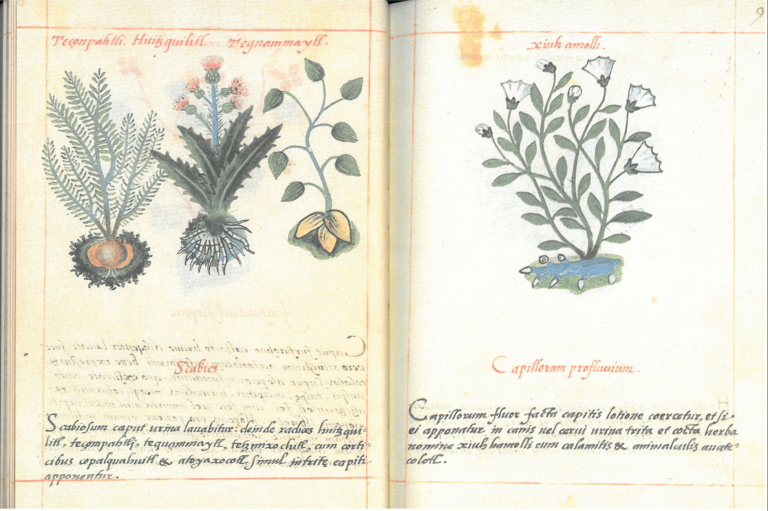 Teçonpahtli. Huitzquilitl. Tequammaytl.
Scabies
Scabiosum caput urina lauabitur: deinde radices huitzqui-
litl, teçompahtli, tequammaytl, tetzmixochitl, cum corti-
cibus copalquahuitl & atoyaxocotl simul intritę capiti
apponentur.
9
xiuh amolli.
Capillorum profluuium.
Capillorum fluor facta capitis lotione coërcetur, et si
ei apponatur in canis uel cerui urina trita et cocta herba
nomine xiuhhamolli cum calamitis & animalculis auate-
colotl.